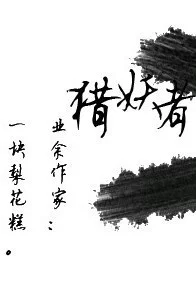 猎妖者
业余作家：
一块梨花糕。